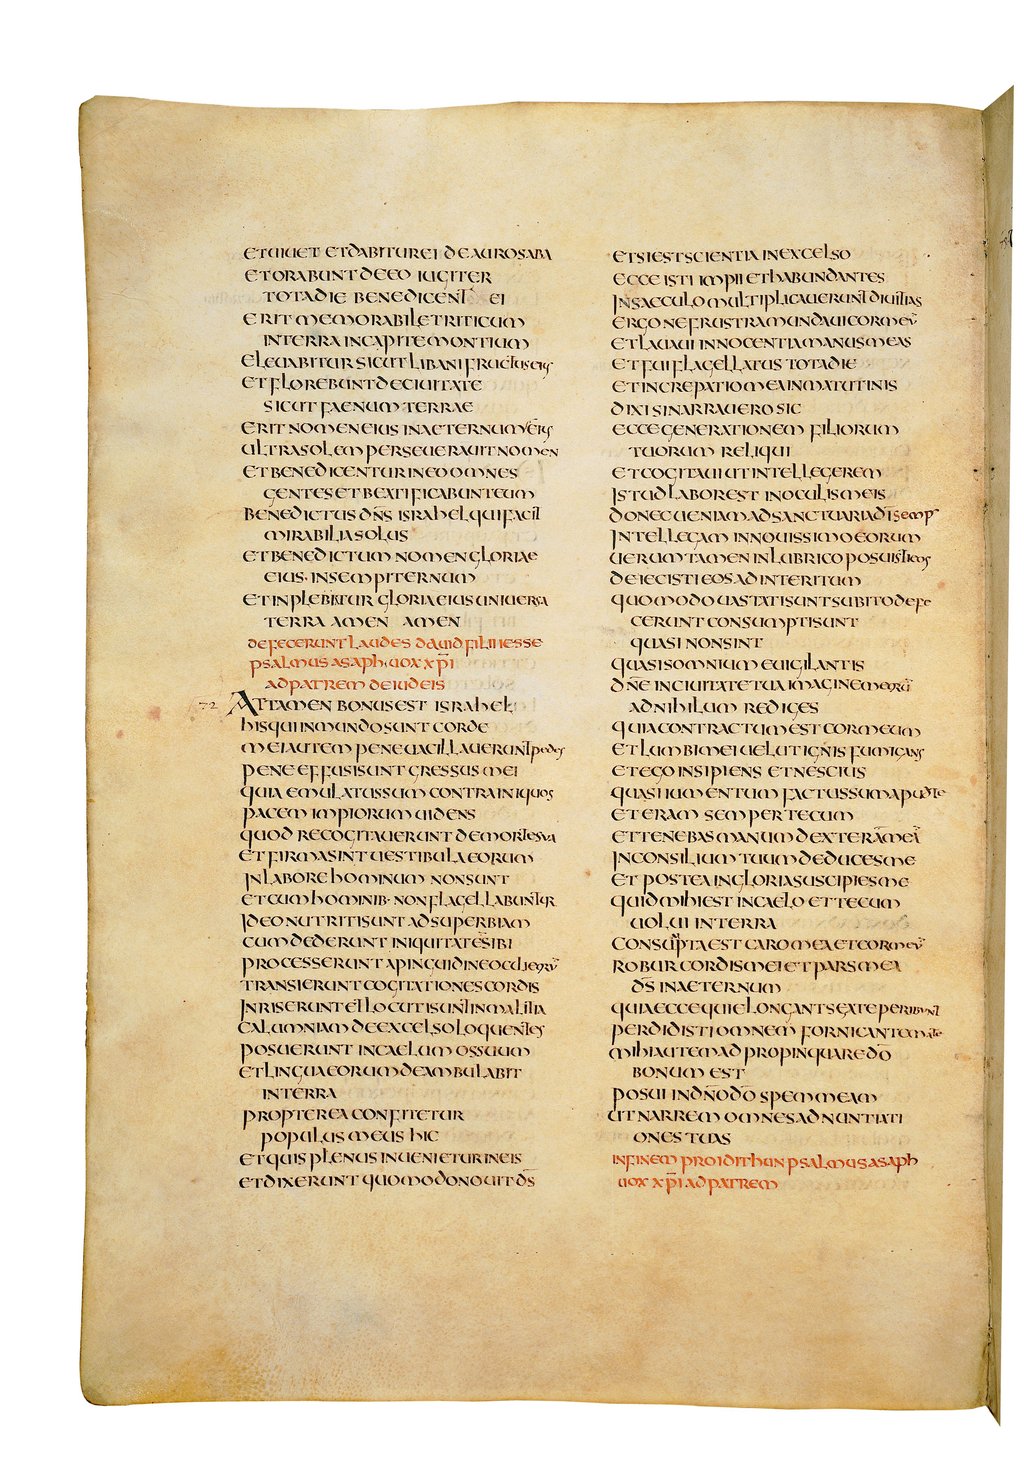 ETUIUET ETDABITUREI DEAUROSABA
ETORABUNT DEEO IUGITER
TOTADIE BENEDICENT EI
ERIT MEMORABILETRITICUM
INTERRA INCAPITEMONTIUM
ELEUABITUR SICUT LIBANI FRUCTUSEIUS
ETFLOREBUNT DECIUITATE
SICUT FAENUM TERRAE
ERITNOMENEIUS INAETERNUM
ULTRASOLEM PERSEUERAUITNOMEN
ETBENEDICENTUR INEOOMNES
GENTESETBEATIFICABUNTEUM
BENEDICTUS DN̄S ISRAHELQUIFACIT
MIRABILIASOLUS
ETBENEDICTUM NOMEN GLORIAE
EIUS·INSEMPITERNUM
ETINPLEBITUR GLORIAEIUSUNIUERSA
TERRA AMEN AMEN
DEFECERUNT LAUDES DAUID FILII IESSE
PSALMUS ASAPH·UOX XP̄I
ADPATREM DEIUDEIS
72 ATTAMEN BONUSEST ISRAHEL
HISQUIINMUNDOSUNT CORDE
MEIAUTEM PENEUACILLAUERUNTPEDES
PENE EFFUSISUNT GRESSUS MEI
QUIA EMULATUSSUM CONTRAINIQUOS
PACEM IMPIORUM UIDENS
QUOD RECOGITAUERUNT DEMORTESUA
ETFIRMASINT UESTIBULAEORUM
INLABOREHOMINUM NONSUNT
ETCUMHOMINIB·NONFLAGELLABUNTUR
IDEONUTRITISUNT ADSUPERBIAM
CUMDEDERUNT INIQUITATESIBI
PROCESSERUNT APINGUIDINEOCULIEORŪ
TRANSIERUNT COGITATIONESCORDIS
INRISERUNTETLOCUTISUNTINMALITIA
CALUMNIAM DEEXCELSOLOQUENTES
POSUERUNT INCAELUM OSSUUM
ETLINGUAEORUMDEAMBULABIT
INTERRA
PROPTEREA CONFITETUR
POPULUS MEUS HIC
ETQUIS PLENUS INUENIETURINEIS
ETDIXERUNT QUOMODONOUIT D̄S
ETSIESTSCIENTIA INEXCELSO
ECCE ISTI IMPII ETHABUNDANTES
INSAECULO MULTIPLICAUERUNTDIUITIAS
ERGONEFRUSTRAMUNDAUICORMEŪ
ETLAUAUI INNOCENTIAMANUSMEAS
ETFUIFLAGELLATUS TOTADIE
ETINCREPATIOMEAINMATUTINIS
DIXI SINARRAUEROSIC
ECCEGENERATIONEM FILIORUM
TUORUM RELIQUI
ETCOGITAUIUTINTELLEGEREM
ISTUDLABOREST INOCULISMEIS
DONECUENIAMADSANCTUARIA
INTELLEGAM INNOUISSIMOEORUM
UERUMTAMEN INLUBRICO POSUISTIEOS
DEIECISTI EOSADINTERITUM
QUOMODO UASTATISUNTSUBITODEFE
CERUNT CONSUMPTISUNT
QUASI NONSINT
QUASISOMNIUM EUIGILANTIS
DN̄E INCIUITATETUA IMAGINEMEORŪ
ADNIHILUM REDIGES
QUIACONTRACTUMEST CORMEUM
ETLUMBIMEIUELUTIGNIS FUMIGANS
ETEGOINSIPIENS ETNESCIUS
QUASIIUMENTUM FACTUSSUMAPUDTE
ETERAM SEMPERTECUM
ETTENEBASMANUMDEXTERĀMEĀ
INCONSILIUM TUUMDEDUCESME
ET POSTEAINGLORIASUSCIPIESME
QUIDMIHIEST INCAELO ETTECUM
UOLUI INTERRA
CONSUPTAEST CAROMEAETCORMEŪ
ROBUR CORDISMEIETPARSMEA
D̄S INAETERNUM
QUIAECCEQUIELONGANTSEXTEPERIBUNT
PERDIDISTIOMNEM FORNICANTEM
MIHIAUTEMADPROPINQUAREDŌ
BONUM EST
POSUI INDN̄ODŌ SPEMMEAM
UTNARREM OMNESADNUNTIATI
ONES TUAS
INFINEM PROIDITHUNPSALMUSASAPH
UOX XP̄I ADPATREM